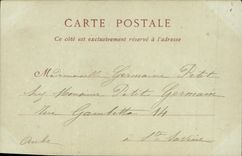 CARTE POSTALE
Ce côté est exclusivement réservé à l'adresse
Mademoiselle Germaine Petit
Monsieur Petit Germain
Rue Gambetta 14
à Ste Savine
Aube